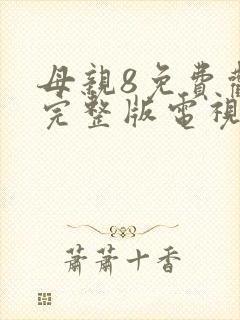 母親8免費觀
完整版電視
蕭蕭十香